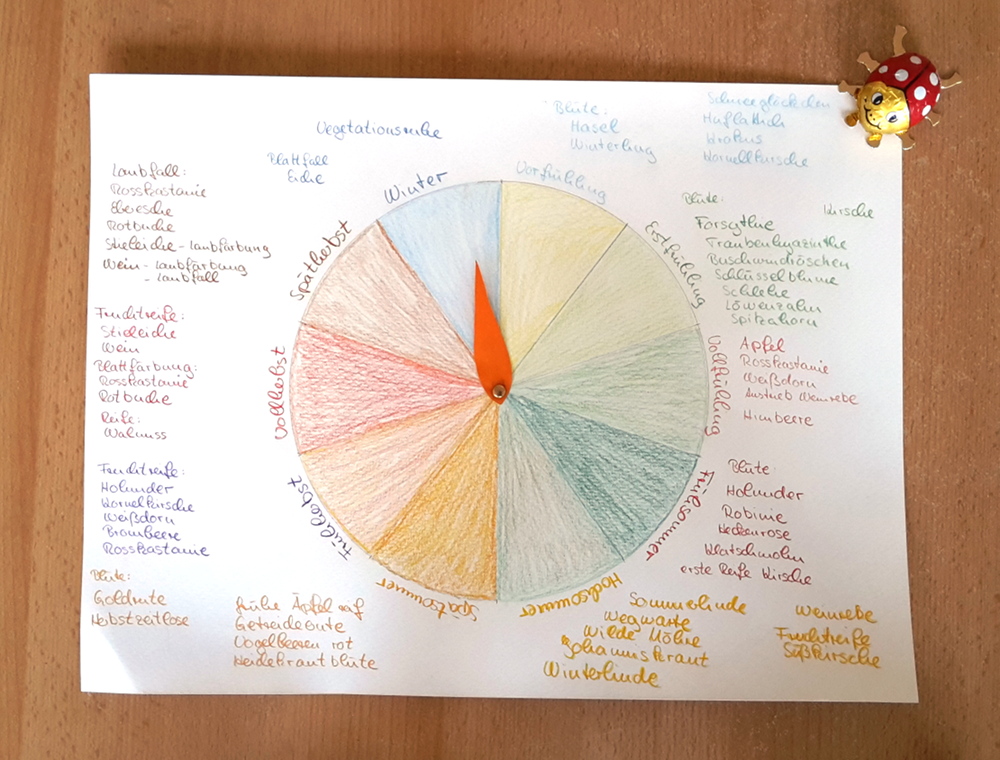 Vegetationsruhe
Blattfall
Eiche
Winter
Blüte:
Hasel
Winterling
Schneeglöckchen
Huflattich
Krokus
Kornellkirsche
Vorfrühling
Blüte:
Kirsche
Forsythie
Traubenhyazinthe
Buschwindröschen
Schlüsselblume
Schlehe
Löwenzahn
Spitzahorn
Erstfrühling
Apfel
Rosskastanie
Weißdorn
Austrieb Weinrebe
Himbeere
Vollfrühling
Blüte:
Holunder
Robinie
Heckenrose
Klatschmohn
erste Reife Kirsche
Frühsommer
Sommerlinde
Wegwarte
Wilde Möhre
Johanniskraut
Winterlinde
Weinrebe
Fruchtreife
Süßkirsche
Hochsommer
frühe Äpfel auf
Getreideernte
Vogelbeeren rot
Heidekraut blüte
Spätsommer
Blüte:
Goldrute
Herbstzeitlose
Fruchtreife:
Holunder
Kornelkirsche
Weißdorn
Brombeere
Rosskastanie
Frühherbst
Fruchtreife:
Stieleiche
Wein
Blattfärbung:
Rosskastanie
Rotbuche
Reife:
Walnuss
Vollherbst
Laubfall:
Rosskastanie
Eberesche
Rotbuche
Stieleiche - Laubfärbung
Wein - Laubfärbung
- Laubfall
Spätherbst